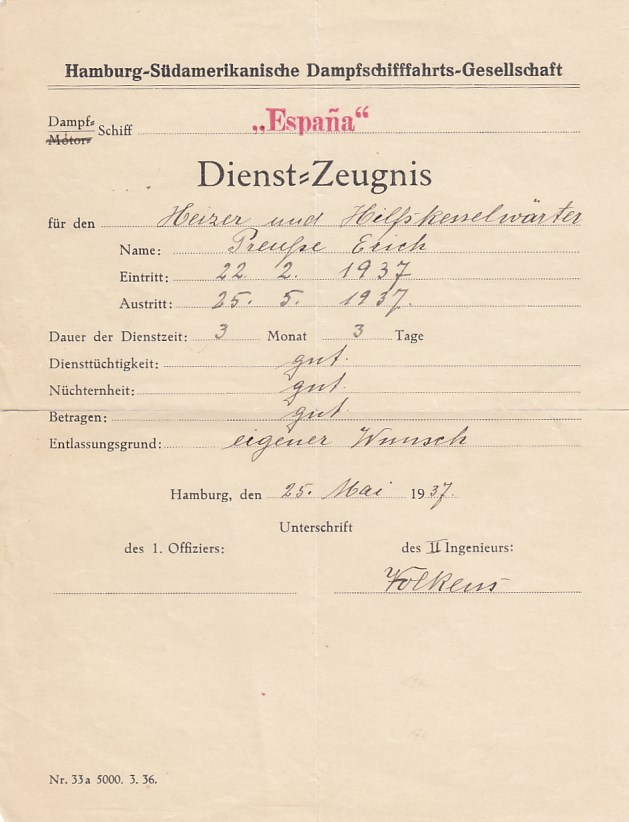 Hamburg-Südamerikanische Dampfschifffahrts-Gesellschaft
Dampf-
Motor- Schiff „España“
Dienst-Zeugnis
für den Heizer und Hilfskesselwärter
Name: Preuße Erich
Eintritt: 22. 2. 1937
Austritt: 25. 5. 1937.
Dauer der Dienstzeit: 3 Monat 3 Tage
Diensttüchtigkeit: gut.
Nüchternheit: gut.
Betragen: gut.
Entlassungsgrund: eigener Wunsch
Hamburg, den 25. Mai 1937.
Unterschrift
des 1. Offiziers: des II Ingenieurs:
Volkens
Nr. 33a 5000. 3. 36.